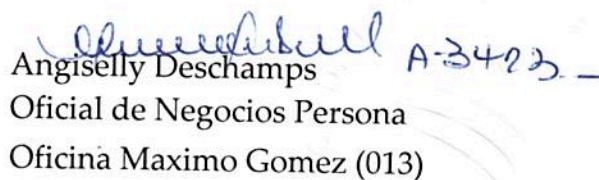 A-3423
Angiselly Deschamps
Oficial de Negocios Persona
Oficina Maximo Gomez (013)